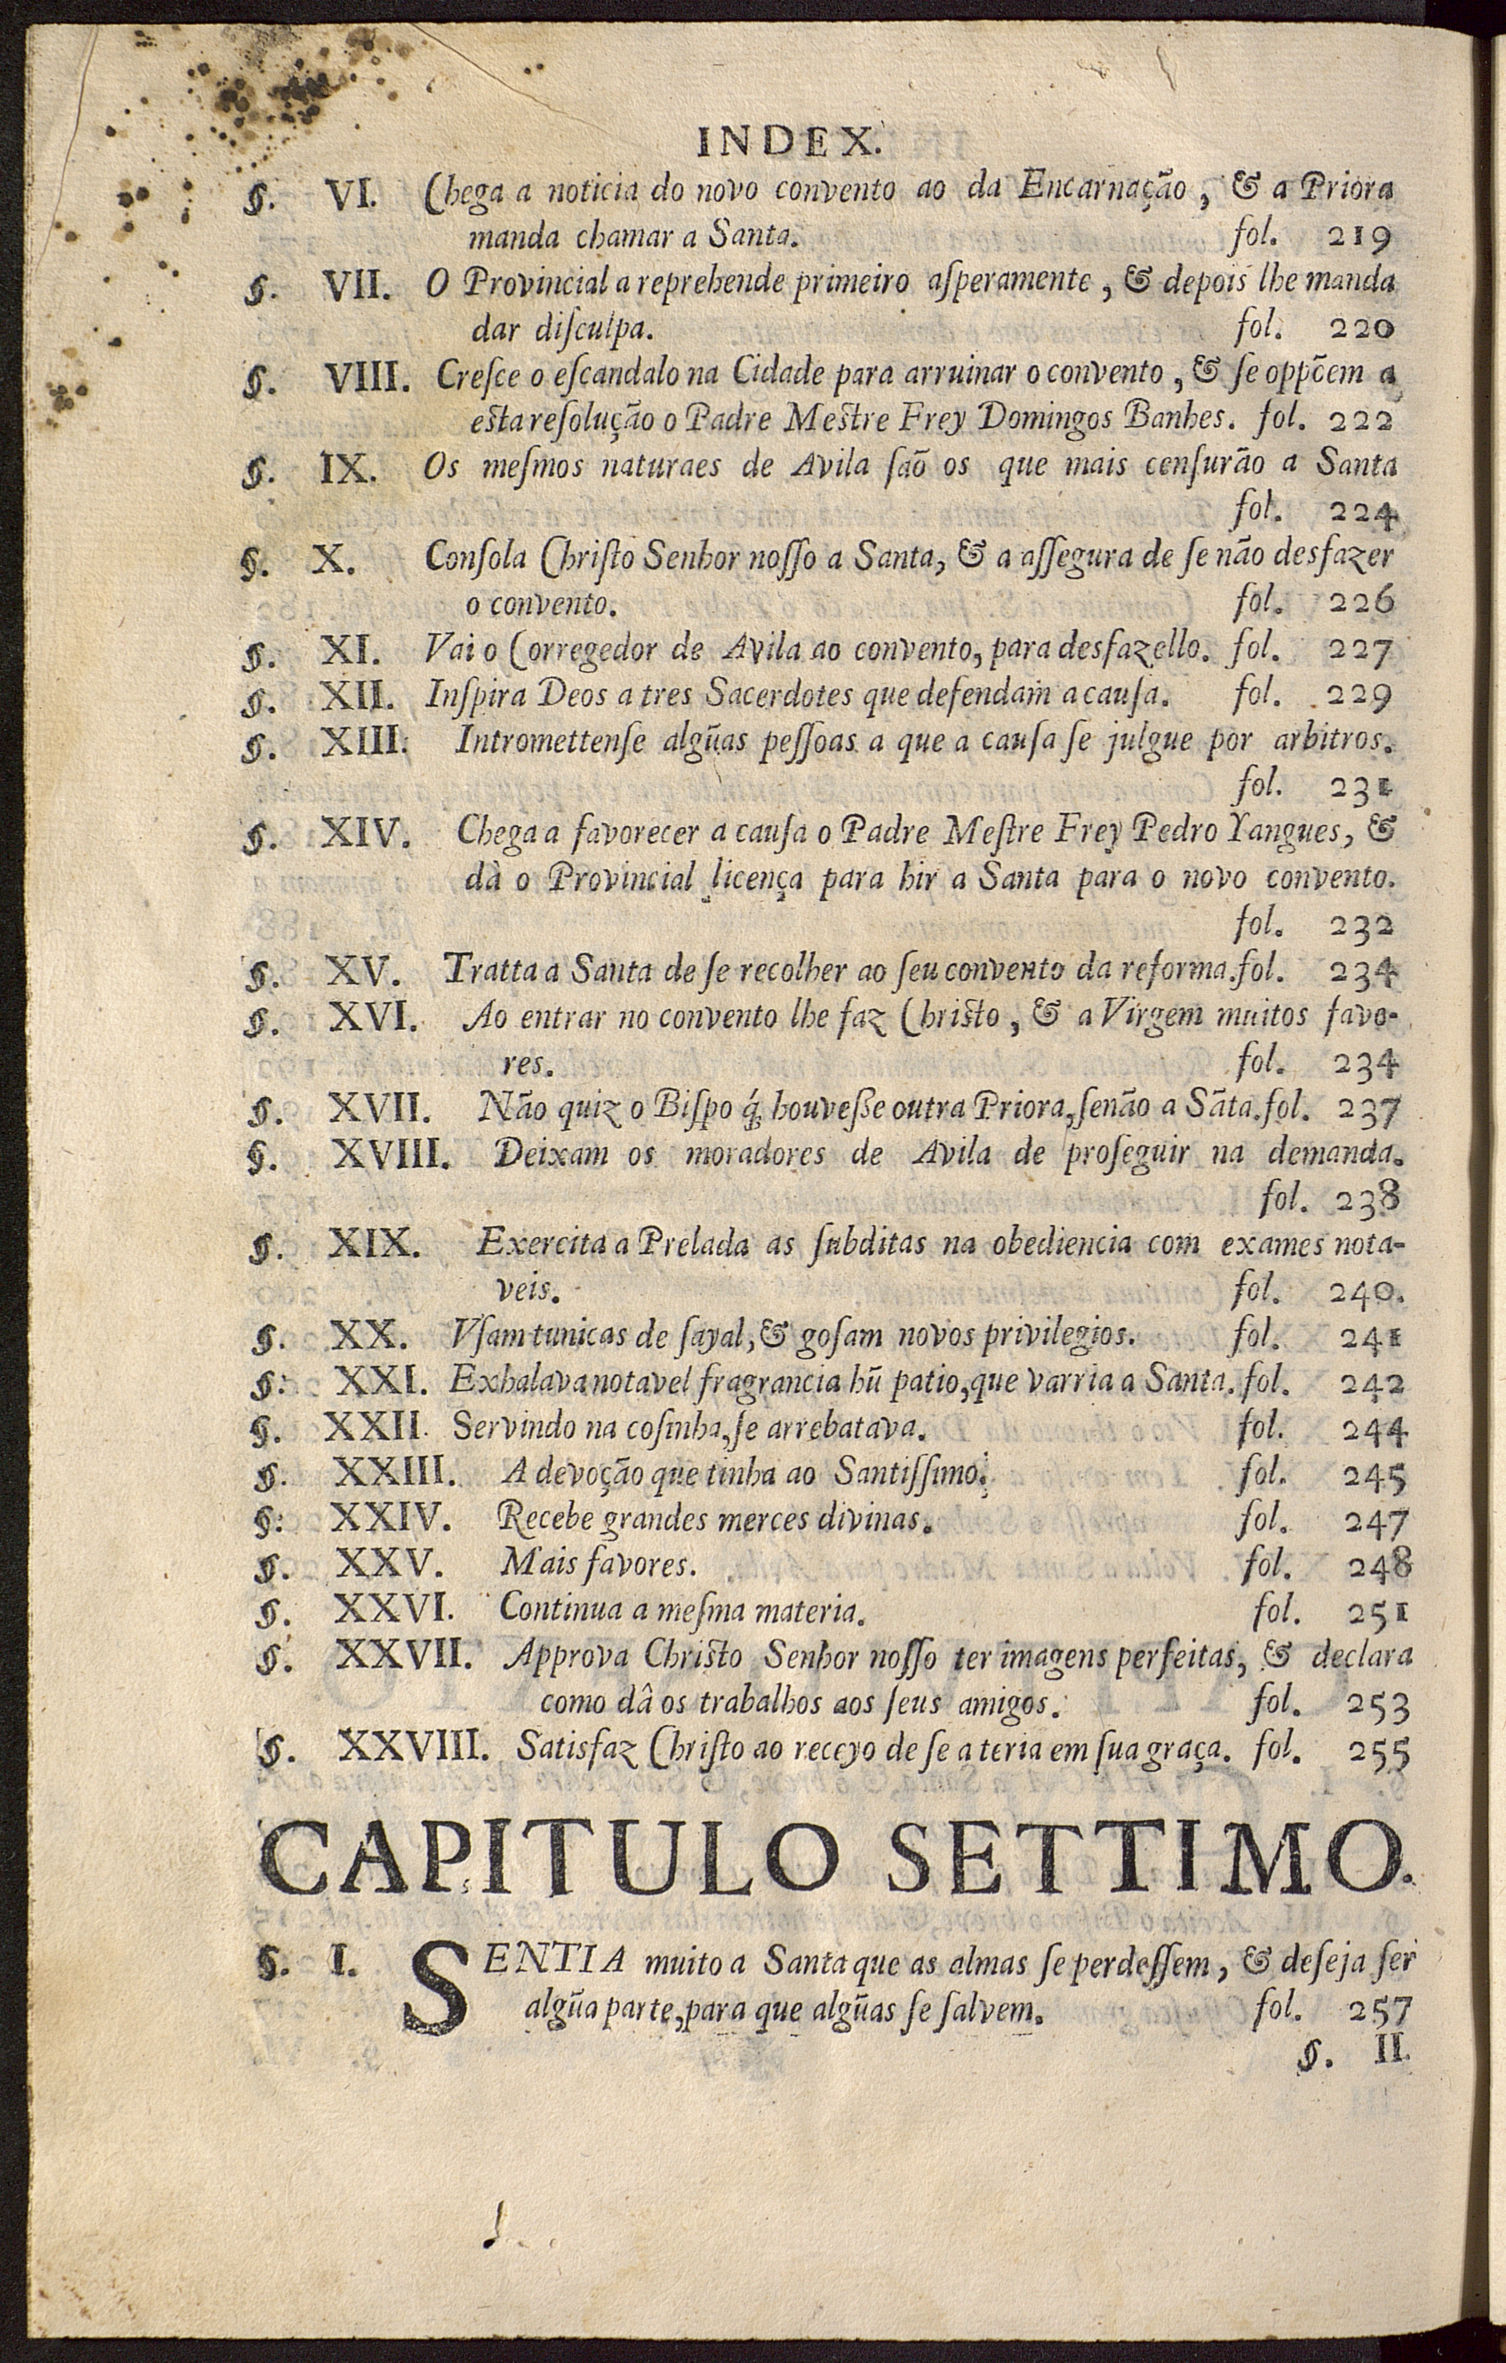 INDEX.
§. VI. Chega a noticia do novo convento ao da Encarnação, & a Priora
manda chamar a Santa. fol. 219
§. VII. O Provincial a reprehende primeiro aſperamente, & depois lhe manda
dar diſculpa. fol. 220
§. VIII. Creſce o eſcandalo na Cidade para arruinar o convento, & ſe oppõem a
eſta reſolução o Padre Meſtre Frey Domingos Banhes. fol. 222
§. IX. Os meſmos naturaes de Avila ſaõ os que mais cenſurão a Santa
fol. 224
§. X. Conſola Chriſto Senhor noſſo a Santa, & a aſſegura de ſe não desfazer
o convento. fol. 226
§. XI. Vai o Corregedor de Avila ao convento, para desfazello. fol. 227
§. XII. Inſpira Deos a tres Sacerdotes que defendam a cauſa. fol. 229
§. XIII. Intromettenſe algũas peſſoas a que a cauſa ſe julgue por arbitros.
fol. 231
§. XIV. Chega a favorecer a cauſa o Padre Meſtre Frey Pedro Yangues, &
dà o Provincial licença para hir a Santa para o novo convento.
fol. 232
§. XV. Tratta a Santa de ſe recolher ao ſeu convento da reforma. fol. 234
§. XVI. Ao entrar no convento lhe faz Chriſto, & a Virgem muitos favo-
res. fol. 234
§. XVII. Não quiz o Biſpo q́ houveſſe outra Priora, ſenão a Sãta. fol. 237
§. XVIII. Deixam os moradores de Avila de proſeguir na demanda.
fol. 238
§. XIX. Exercita a Prelada as ſubditas na obediencia com exames nota-
veis. fol. 240.
§. XX. Vſam tunicas de ſayal, & goſam novos privilegios. fol. 241
§. XXI. Exhalava notavel fragrancia hũ patio, que varria a Santa. fol. 242
§. XXII. Servindo na coſinha, ſe arrebatava. fol. 244
§. XXIII. A devoção que tinha ao Santiſſimo. fol. 245
§. XXIV. Recebe grandes merces divinas. fol. 247
§. XXV. Mais favores. fol. 248
§. XXVI. Continua a meſma materia. fol. 251
§. XXVII. Approva Chriſto Senhor noſſo ter imagens perfeitas, & declara
como dâ os trabalhos aos ſeus amigos. fol. 253
§. XXVIII. Satisfaz Chriſto ao receyo de ſe a teria em ſua graça. fol. 255
CAPITULO SETTIMO.
§. I. SENTIA muito a Santa que as almas ſe perdeſſem, & deſeja ſer
algũa parte, para que algũas ſe ſalvem. fol. 257
§. II.